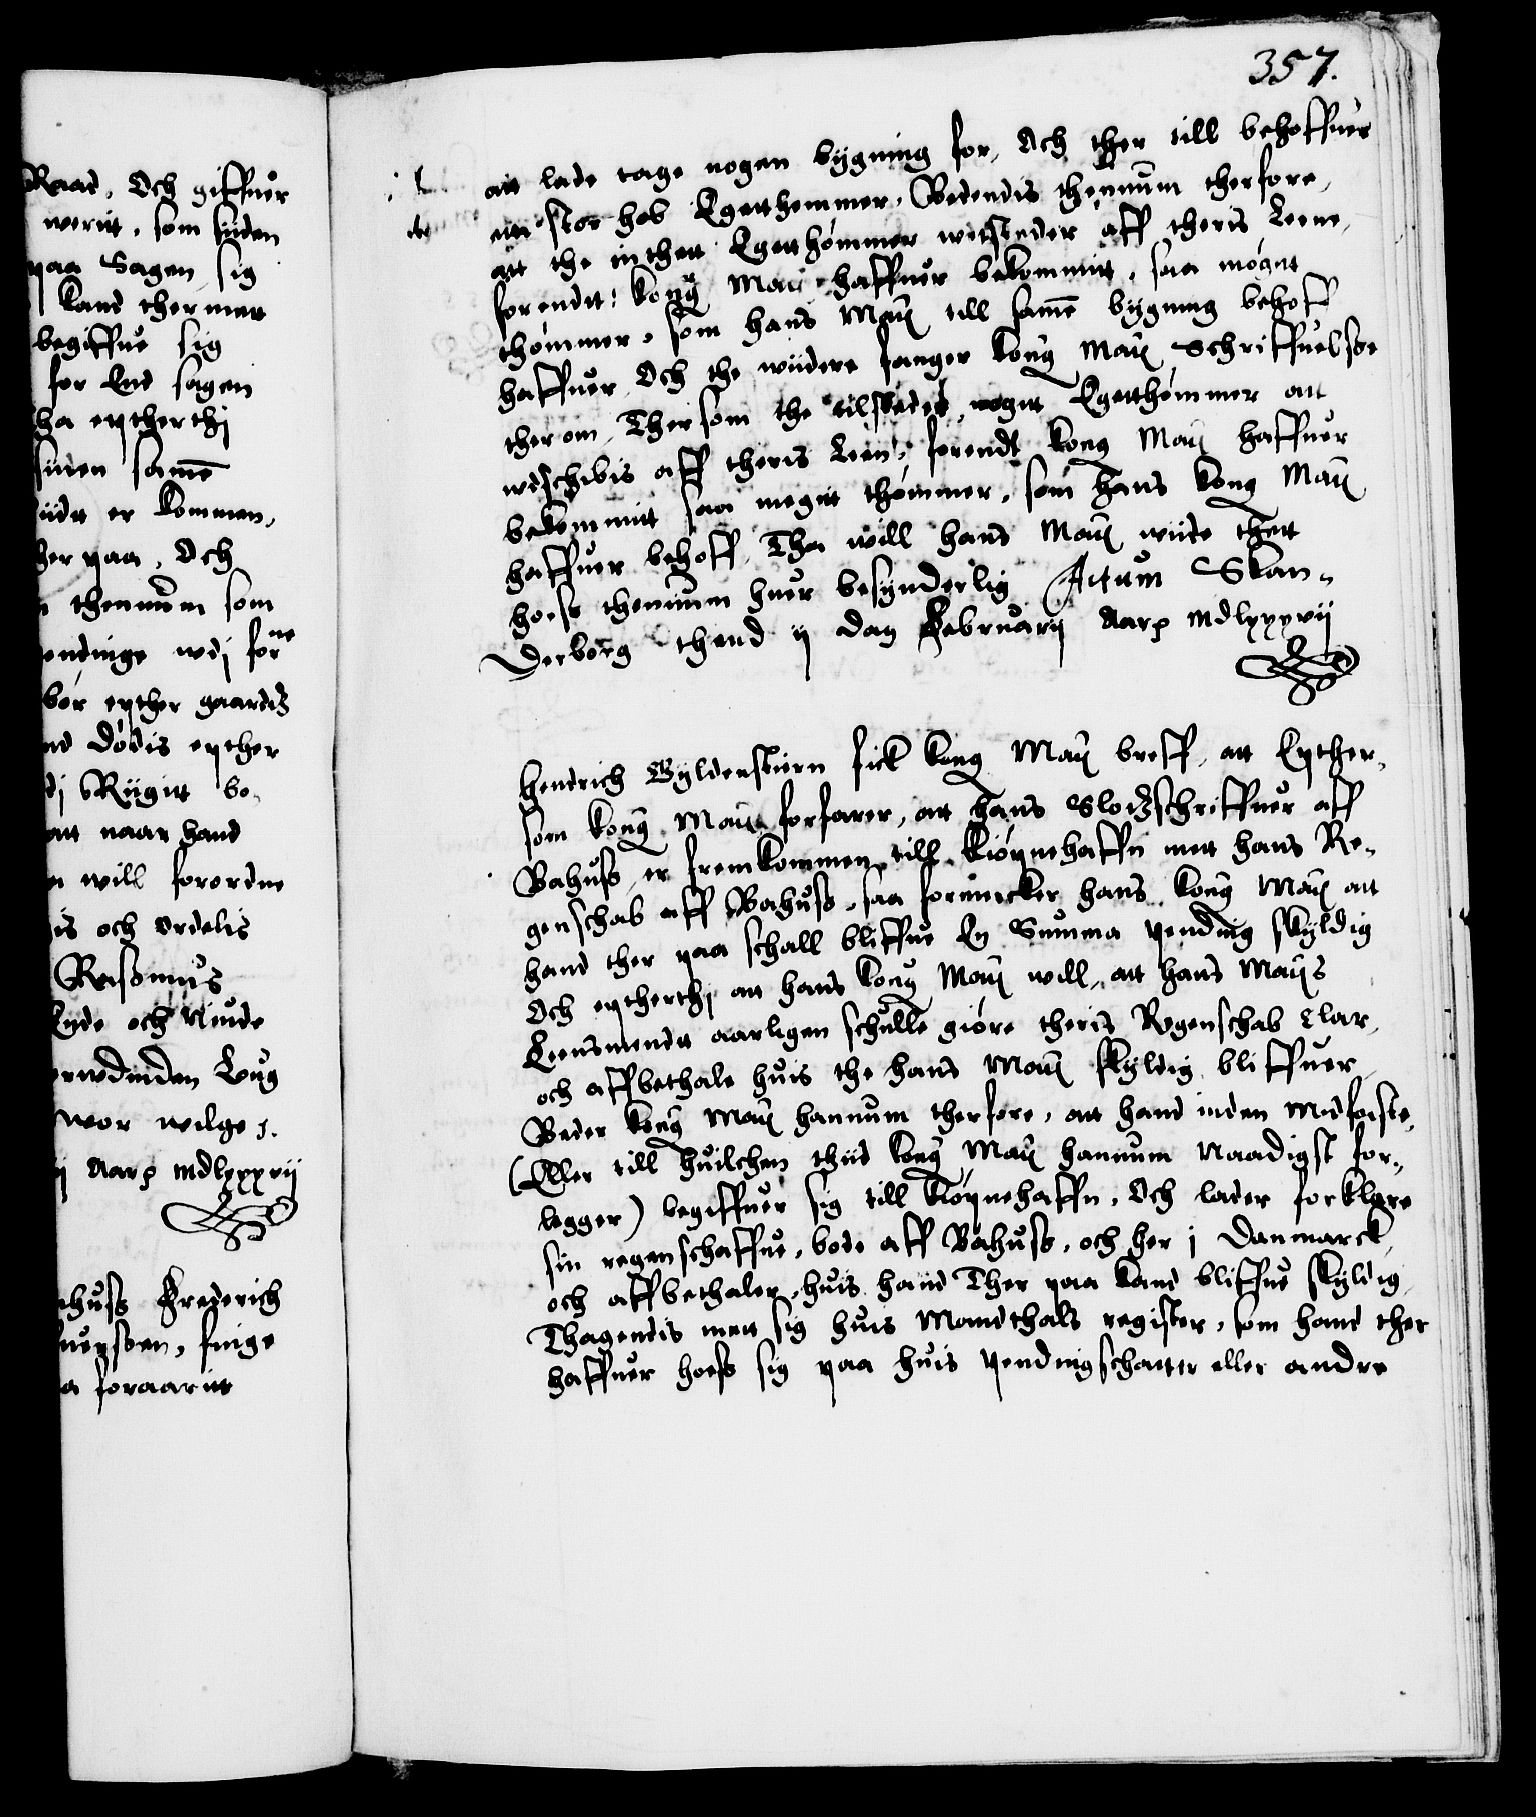 Raad, Och giffuer
werit, som siiden
paa Sagen, sig
kand ther mett
begiffue sig
for End sagen
tha eptherthj
sinen same
tiidtt er kommen,
her paa, Och
thennum som
endinge wdj forne
bór epther gaardtz
nd dódis epther
dj Riigitt be-
att naar hand
will forordne
is och ordelis
Rasmus
Lyde och Niude
erwdinden Loug
wor wilge s.
ij Aarp mdlxxxvij
ahuss Frederich
uepsen, finge
a foraaritt
357.
att lade tage nogen bÿgning for, Och ther till behoffuer
ett stor hob Egetthemmer, Bedendis thennum therfore,
att the inthett Egetthómmer wdstedér aff theris Leene,
forendtt: kong Matt haffuer bekommitt, saa mógitt
thómmer, som hans Matt till same bÿgning behoff
haffuer, Och the wiidere fanger kong Matt Schriffuelsse
therom, Thersom the tilsteder, nogitt Egetthómmer att
wdschibis aff theris Leen, forendt kong Matt haffuer
bekommitt saa megitt thómmer, som hans kong Matt
haffuer behoff, Tha will hans Matt wiide thett
hoess thennum huer besÿnderlig Actum Skan-
derborg thend ij dag Februarij Aarp mdlxxxvij
Hendrich Gÿldenstiern fick kong Matt breff, att Epther-
som kong Matt forfarer, att hans Slodtzschriffuer aff
Bahuss, er fremkommen till Kiópnehaffn mett hans Re-
genschab aff Bahuss, saa formercker hans kong Matt att
hand ther paa schall bliffue En Summa pending skÿldig
Och eptherthj att hans kong Matt will, att hans Matts
Leensmendtt aarligen schulle gióre theris Regenschab klar,
och affbethale huis the hans Matt skÿldig bliffuer,
Beder kong Matt hannum therfore, att hand inden Midfaste,
(Eller till huilchen thiid kong Matt hannum Naadigst for-
legger) begiffuer sig till Kiópnehaffn, Och lader forklare
sin regenschaffue, bode aff Bahuss, och her j Danmarck,
och affbethaler, huis hand Ther paa kand bliffue skÿldig,
Thagendis mett sig huis Mandthals register, som hand ther
haffuer hoess sig paa huis pendingschatte eller andre